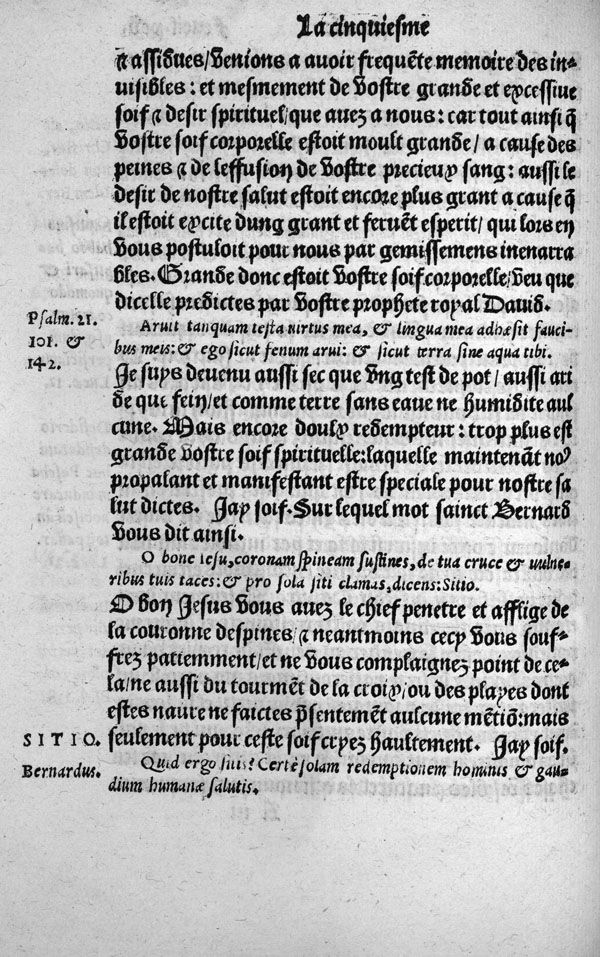 La cinquiesme
& assidues/ venions a avoir frequẽte memoire des in-
visibles: et mesmement de vostre grande et excessive
soif & desir spirituel/ que avez a nous: car tout ainsi q̃
vostre soif corporelle estoit moult grande/ a cause des
peines & de leffusion de vostre precieux sang: aussi le
desir de nostre salut estoit encore plus grant a cause q̃
il estoit excite dung grant et fervẽt esperit/ qui lors en
vous postuloit pour nous par gemissemens inenarra
bles. Grande donc estoit vostre soif corporelle/ veu que
dicelle predictes par vostre prophete royal David.
Psalm. 21.
101. &
142.
Aruit tanquam testa virtus mea, & lingua mea adhæsit fauci-
bus meis: & ego sicut fenum arui: & sicut terra sine aqua tibi.
Je suys devenu aussi sec que ung test de pot/ aussi ari
de que fein/ et comme terre sans eaue ne humidite aul
cune. Mais encore doulx redempteur: trop plus est
grande vostre soif spirituelle: laquelle maintenãt noꝰ
propalant et manifestant estre speciale pour nostre sa
lut dictes. Jay soif. Sur lequel mot sainct Bernard
vous dit ainsi.
O bone Iesu, coronam spineam sustines, de tua cruce & vulne-
ribus tuis taces: & pro sola siti clamas, dicens: Sitio.
O bon Jesus vous avez le chief penetre et afflige de
la couronne despines/ & neantmoins cecy vous souf-
frez patiemment/ et ne vous complaignez point de ce-
la/ ne aussi du tourmẽt de la croix/ ou des playes dont
estes navre ne faictes p̃sentement aulcune mẽtiõ: mais
seulement pour ceste soif cryez haultement. Jay soif.
SITIO.
Bernardus.
Quid ergo sitis? Certè solam redemptionem hominis & gau-
dium humanæ salutis.